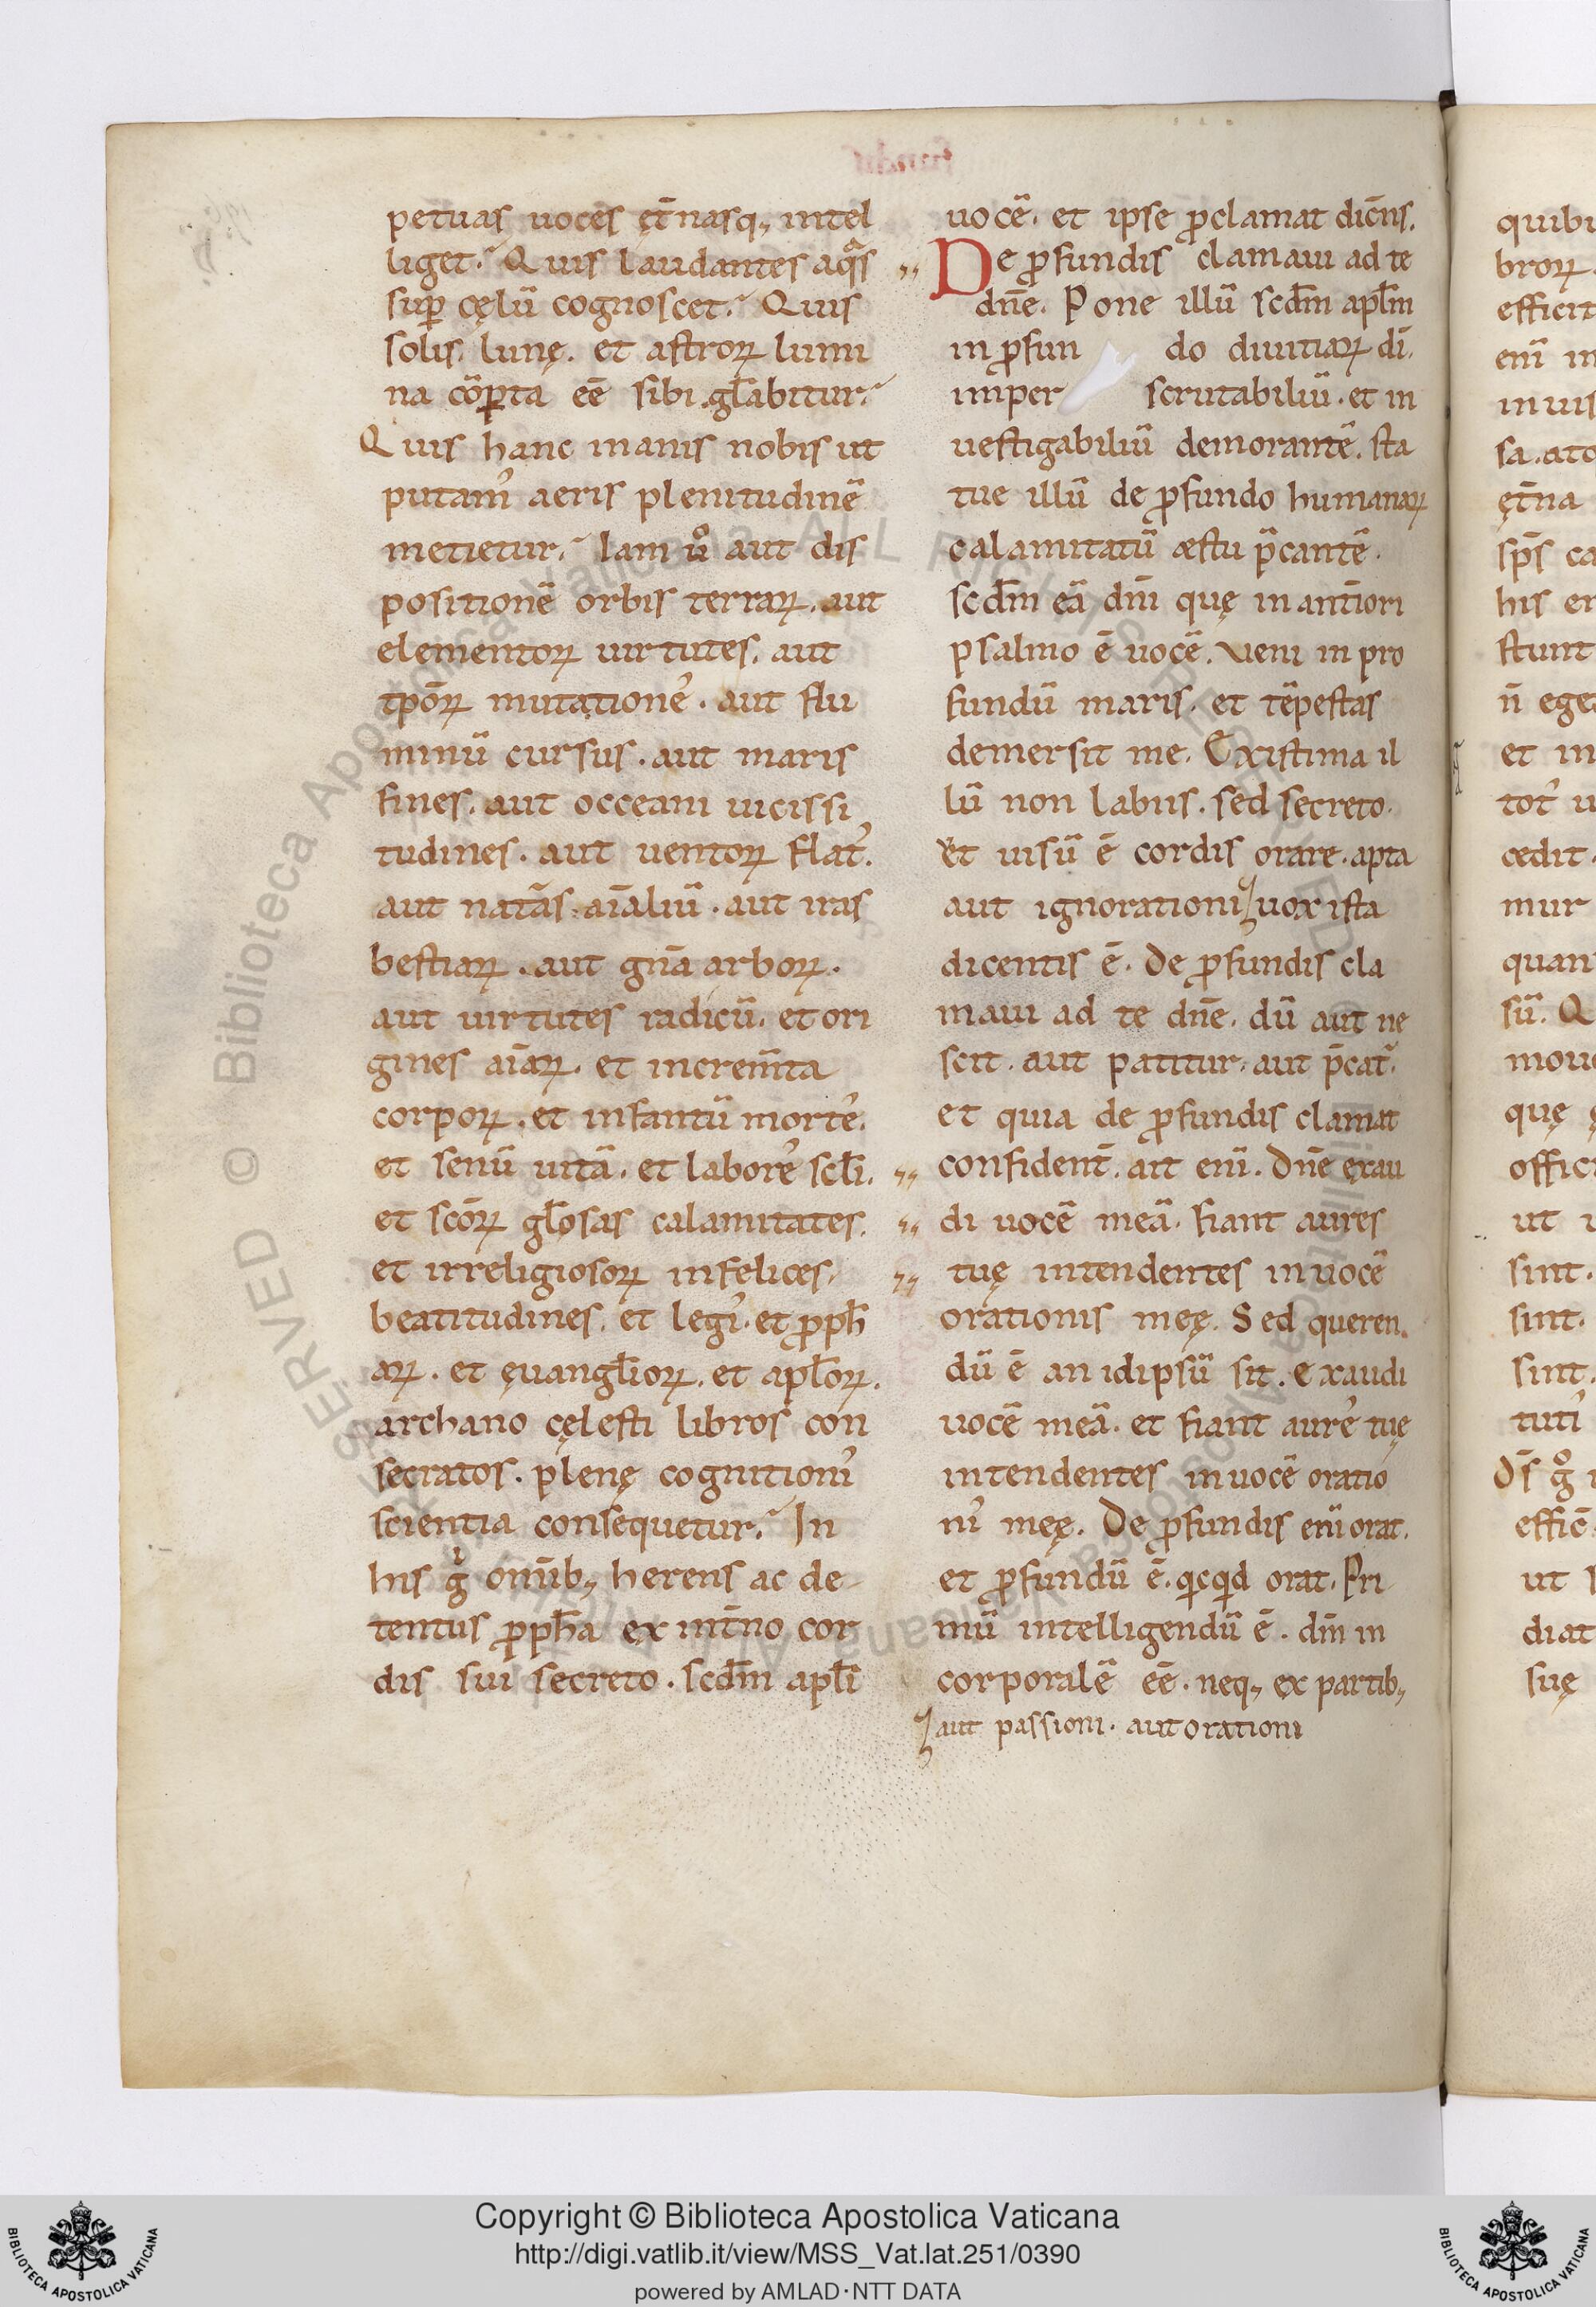 petuas uoces ęt̄nasq; intel
liget. Quis laudantes aqᷓs
suꝑ cęlū cognoscet. Quis
solis. lunę. et astroꝝ lumi
na cōꝑta eē sibi gl̄abitur.
Quis hanc inanis nobis ut
putam᾽ aeris plenitudinē
metietur. Iam uͦ aut dis
positionē orbis terraꝝ. aut
elementoꝝ uirtutes. aut
tp̄oꝝ mutatione᾽. aut flu
minū cursus. aut maris
fines. aut occeani uicissi
tudines. aut uentoꝝ flat᾽.
aut natās aīaliū. aut iras
bestiaꝝ. aut gn̄a arboꝝ.
aut uirtutes radicū. et ori
gines aīaꝝ. et increm̄ta
corpoꝝ. et infantū morte᾽.
et senū uitā. et labore᾽ scl̄i.
et sc̄oꝝ gl̄osas calamitates.
et irreligiosoꝝ infelices
beatitudines. et legi᾽. et ꝓph̄
aꝝ. et ęuangl̄ioꝝ. et apl̄oꝝ.
archano cęlesti libros con
secratos. plenę cognitioni᾽
scientia consequetur. In
his gͥ om̄ib; herens ac de-
tentus ꝓph̄a ex int̄no cor
dis sui secreto. scd̄m apl̄i
uocē. et ipse ꝓclamat dicn̄s.
De ꝓfundis clamaui ad te
dn̄e. Pone illū scd̄m apl̄m
in ꝓfun do diuitiaꝝ dī.
imper scrutabiliū. et in
uestigabiliū demorantē. sta
tue illū de ꝓfundo humanaꝝ
calamitatū æstu p̄cantē.
scd̄m eā dn̄i quę in ant̄iori
psalmo ē uocē. Veni in pro
fundū maris. et tēpestas
demersit me. Existima il
lū non labiis. sed secreto.
et uisū ē cordis orare. apta
aut ignorationi uox ista
dicentis ē. De ꝓfundis cla
maui ad te dn̄e. dū aut ne
scit. aut patitur. aut p̄cat᷑.
et quia de ꝓfundis clamat
confident̄. ait enī. Dn̄e exau
di uocē meā. fiant aures
tuę intendentes in uocē
orationis meę. Sed queren
dū ē an idipsū sit. exaudi
uocē meā. et fiant aure᾽ tuę
intendentes in uocē oratio
ni᾽ meę. De ꝓfundis enī orat.
et ꝓfundū ē. qͥcqͥd orat. Pri
mū intelligendū ē. dm̄ in
corporalē eē. neq; ex partib;
aut passioni. aut orationi
quibu
broꝝ.
efficit
enī in
inuis
sa. ato
ęt̄na
sp̄s ca
his er
stunt
n̄ ege
et in
tot᾽ u
cedit.
mur
quan
sū. Q
moue
quę
offici
ut u
sint.
sint.
sint.
tuti᾽
Ds̄ gͦ
effic̄
ut
diat
suę
Copyright © Biblioteca Apostolica Vaticana
http://digi.vatlib.it/view/MSS_Vat.lat.251/0390
powered by AMLAD·NTT DATA
BIBLIOTECA APOSTOLICA VATICANA
BIBLIOTECA APOSTOLICA VATICANA